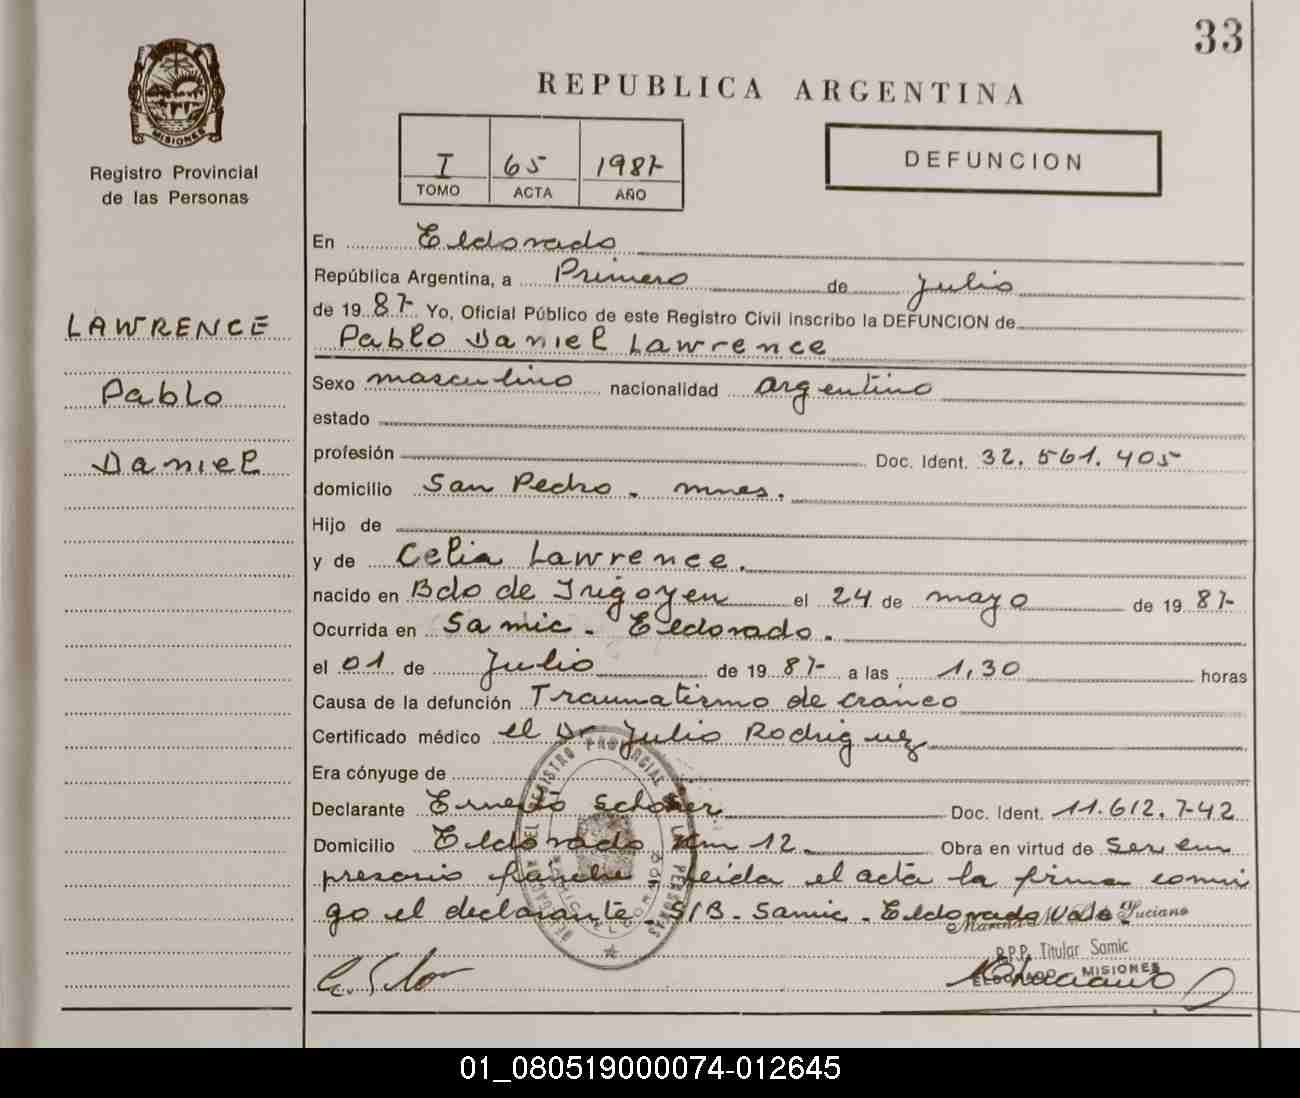 33
REPUBLICA ARGENTINA
MISIONES
Registro Provincial
de las Personas
I 65 1987
TOMO ACTA AÑO
DEFUNCION
LAWRENCE
Pablo
Daniel
En Eldorado
República Argentina, a Primero de Julio
de 19 87 Yo, Oficial Público de este Registro Civil inscribo la DEFUNCION de
Pablo Daniel Lawrence
Sexo masculino nacionalidad argentino
estado
profesión Doc. Ident. 32.561.405
domicilio San Pedro. mnes.
Hijo de
y de Celia Lawrence.
nacido en Bdo de Irigoyen el 24 de mayo de 19 87
Ocurrida en Samic. Eldorado.
el 01 de Julio de 19 87 a las 1,30 horas
Causa de la defunción Traumatismo de cráneo
Certificado médico el Dr Julio Rodriguez
Era cónyuge de
Declarante Ernesto Doc. Ident. 11.612.742
Domicilio Eldorado Km 12. Obra en virtud de Ser em
presario leida el acta la firma conmi
go el declarante. S/B. Samic. Eldorado Vale
Luciano
Titular Samic
ELDORADO MISIONES
01_080519000074-012645